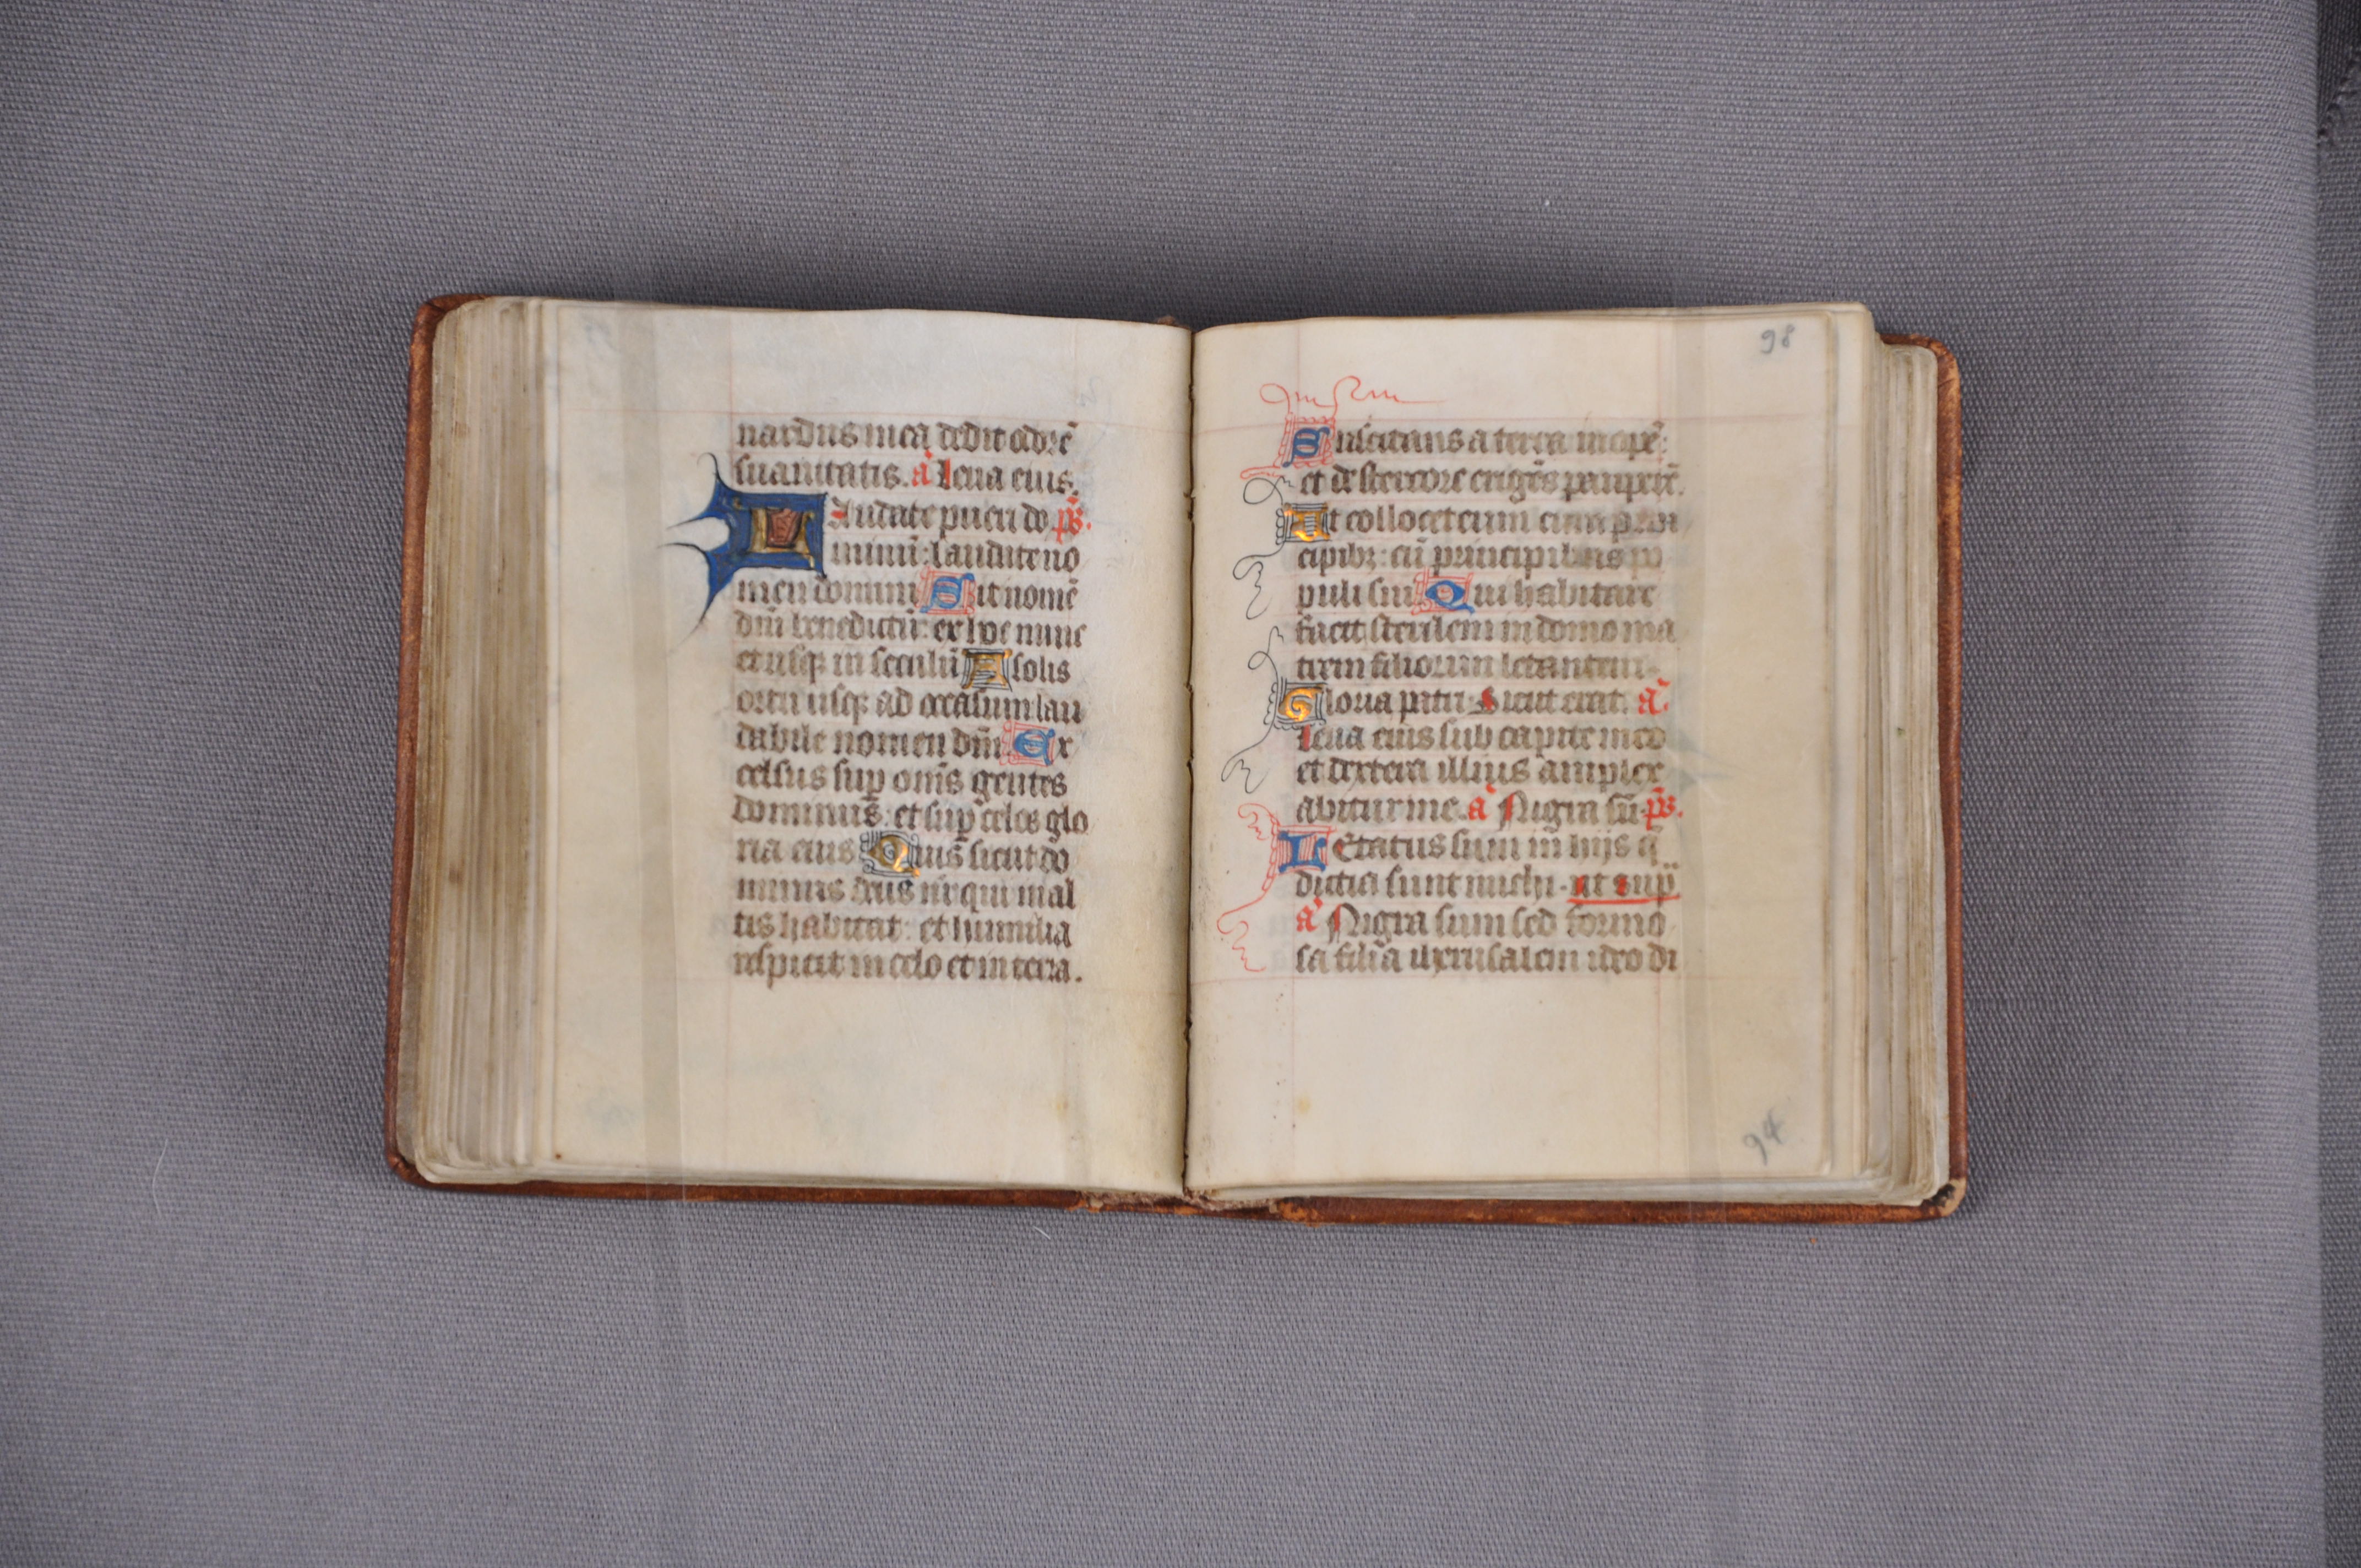 nardus mea dedit odorē
suauitatis. a᷒ Leua eius.
LAudate pueri do p̄s.
minū: laudate no
men domini Sit nomē
dn̄i benedictū: ex hoc nunc
et usq; in seculū A solis
ortu usq; ad occasum lau
dabile nomen dn̄i Ex
celsus sup om̄s gentes
dominus: et sup celos glo
ria eius Quis sicut do
minus deus nr̄ qui in al
tis habitat: et humilia
respicit in celo et in terra.
98
Suscitans a terra inopē:
et de stercore erigēs pauperē.
Ut collocet eum cum prin
cipibz: cū principibus po
puli sui Qui habitare
facit sterilem in domo ma
trem filiorum letantem.
Gloria patri. Sicut erat. a᷒.
Leua eius sub capite meo
et dextera illius amplex
abitur me. a᷒ Nigra sū. p̄s.
LEtatus sum in hijs q̄
dicta sunt michi. ut sup̄.
a᷒ Nigra sum sed formo
sa filia iherusalem ideo di
94